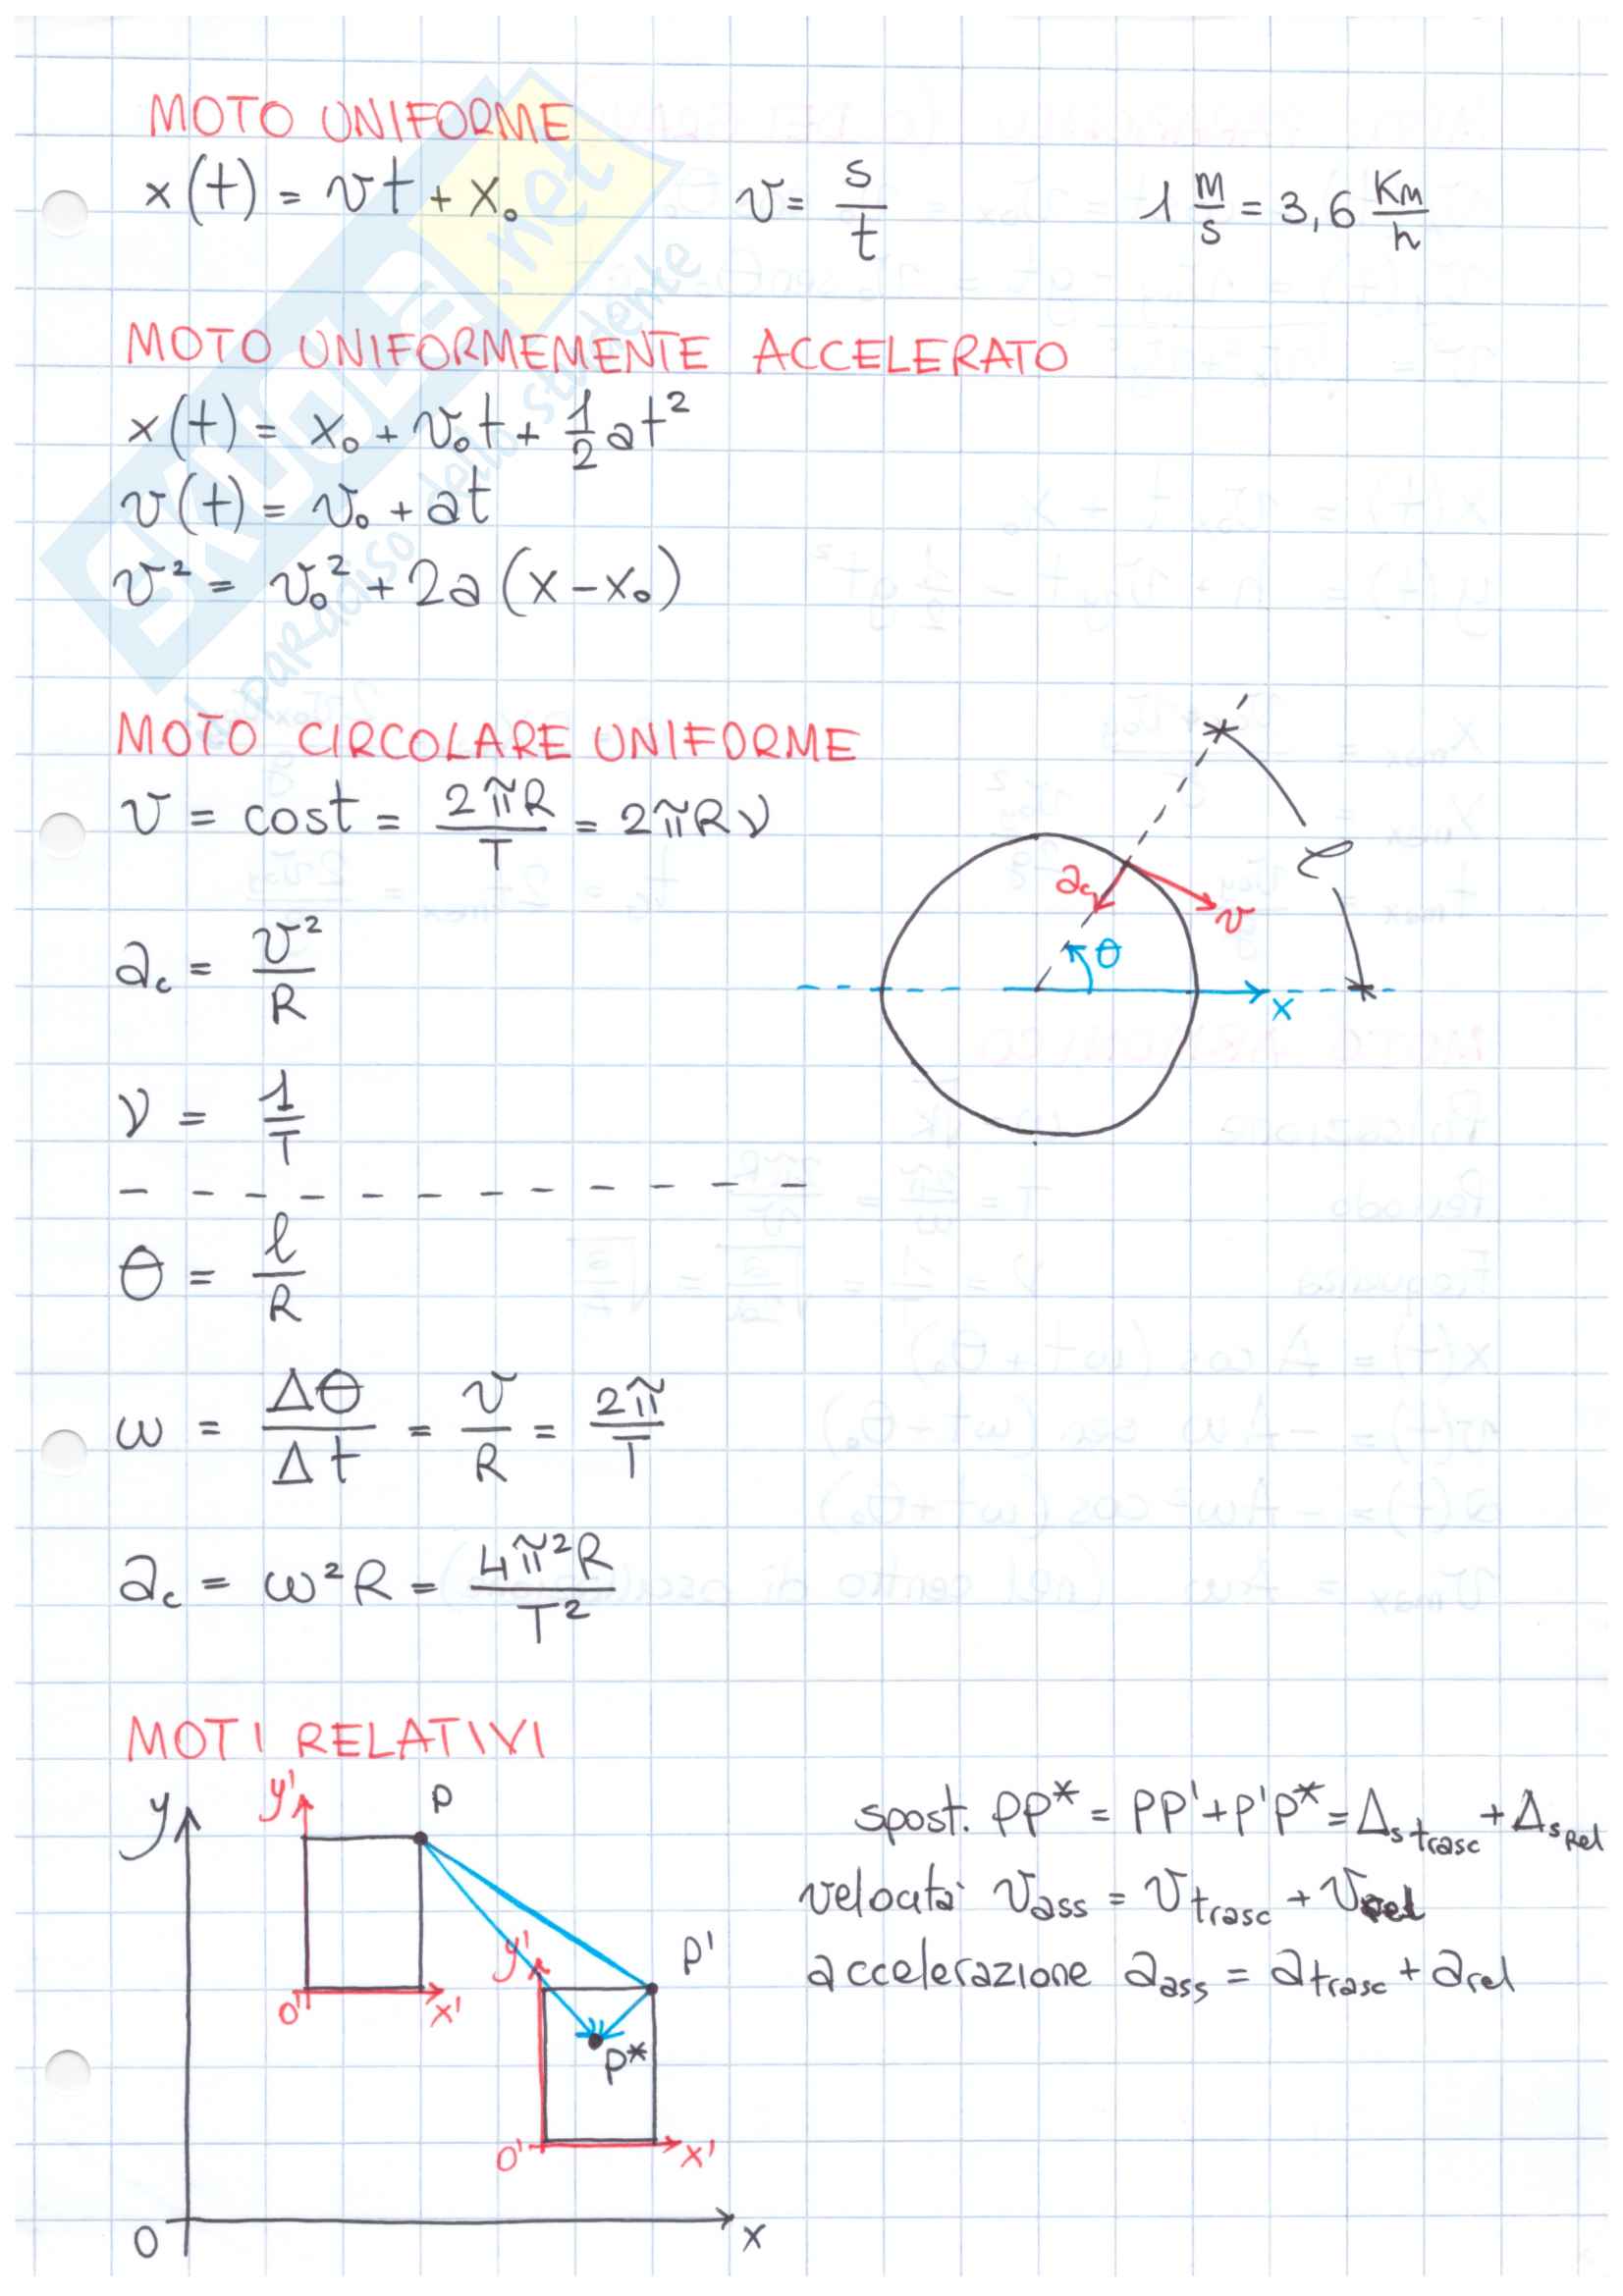 MOTO UNIFORME
x(t) = vt + x₀    v = s/t    1 m/s = 3,6 Km/h
MOTO UNIFORMEMENTE ACCELERATO
x(t) = x₀ + v₀t + 1/2 at²
v(t) = v₀ + at
v² = v₀² + 2a (x - x₀)
MOTO CIRCOLARE UNIFORME
v = cost = 2πR/T = 2πRν
a_c = v²/R
ν = 1/T
θ = l/R
ω = Δθ/Δt = v/R = 2π/T
a_c = ω²R = 4π²R/T²
l
a_c
v
θ
x
MOTI RELATIVI
y
y'
P
O'
x'
y'
P'
P*
O'
x'
O
x
spost. PP* = PP' + P'P* = Δs trasc + Δs Rel
velocità v ass = v trasc + v rel
accelerazione a ass = a trasc + a rel
SKUOLA.net
il paradiso dello studente